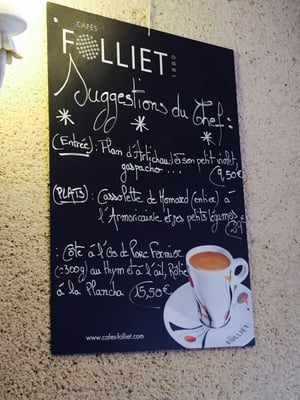 CAFÉS
FOLLIET
1880
Suggestions du Chef :
(Entrée) : Flan d'Artichaud et son petit violet,
gaspacho ... 9,50€
(PLATS) : Cassolette de Homard (entier) à
l'Armoricaine et ses petits légumes
29€
: Côte à l'Os de Porc Fermier
(≈300g) au thym et à l'ail, Rôtie
à la Plancha 15,50€
www.cafes-folliet.com
FOLLIET